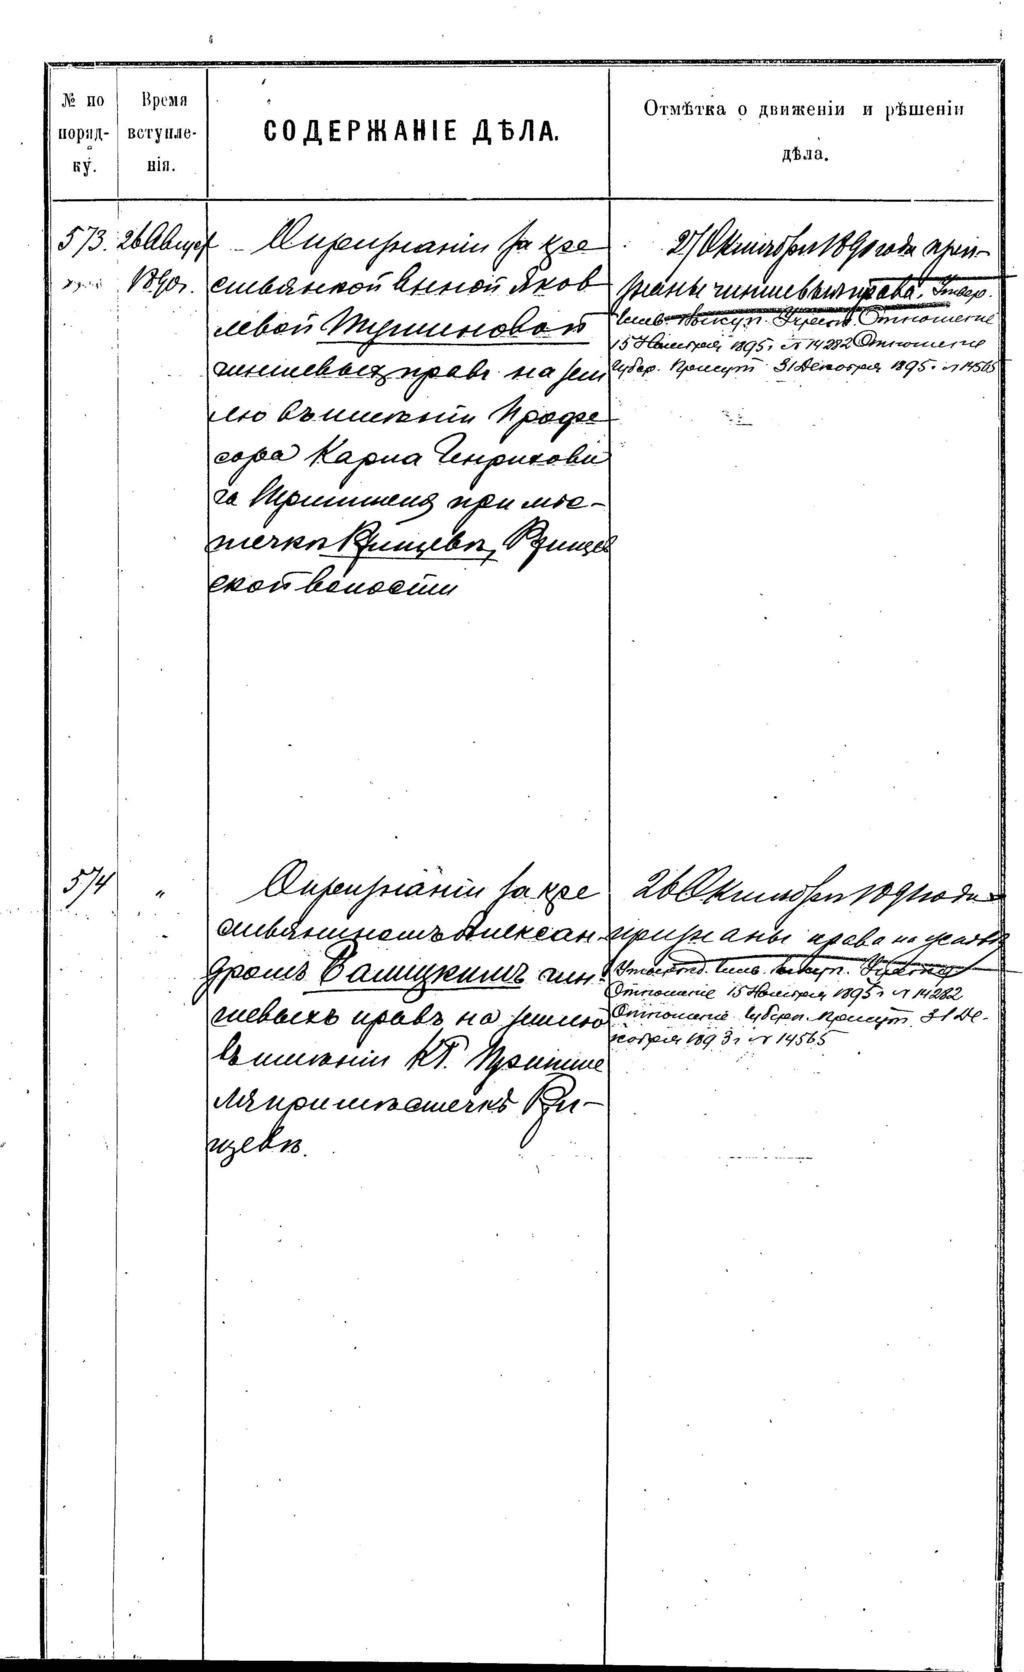 № по поряд-ку.
Время вступле-нія.
СОДЕРЖАНІЕ ДѢЛА.
Отмѣтка о движеніи и рѣшеніи
дѣла.
573. 26 Август
1890 г.
О признаніи за кре
стьянкой Анной Яков
левой
чиншевыхъ правъ на зем
лю въ имѣніи Профе
сора Карла Генрихови
ча Тритшеля при мѣс-
течкѣ Ржищевѣ, Ржищев
ской волости
27 Октября 1891 года при-
знаны чиншевыя права. Утвер.
выкуп. Отношеніе
15 Ноября 1895 г. № 14282 Отношеніе
Губер. Присут 31 Декабря 1895 г. № 14565
574 "
О признаніи за кре
стьяниномъ Алексан
дромъ чин
шевыхъ правъ на землю
въ имѣніи К. Г. Тритше
ля при мѣстечкѣ Ржи-
щевѣ.
26 Октября 1891 года
признаны права на усадьб
Отношеніе 15 Ноября 1895 г. № 14282
Отношеніе Губерн. Присут. 31 Де-
кабря 1893 г. № 14565